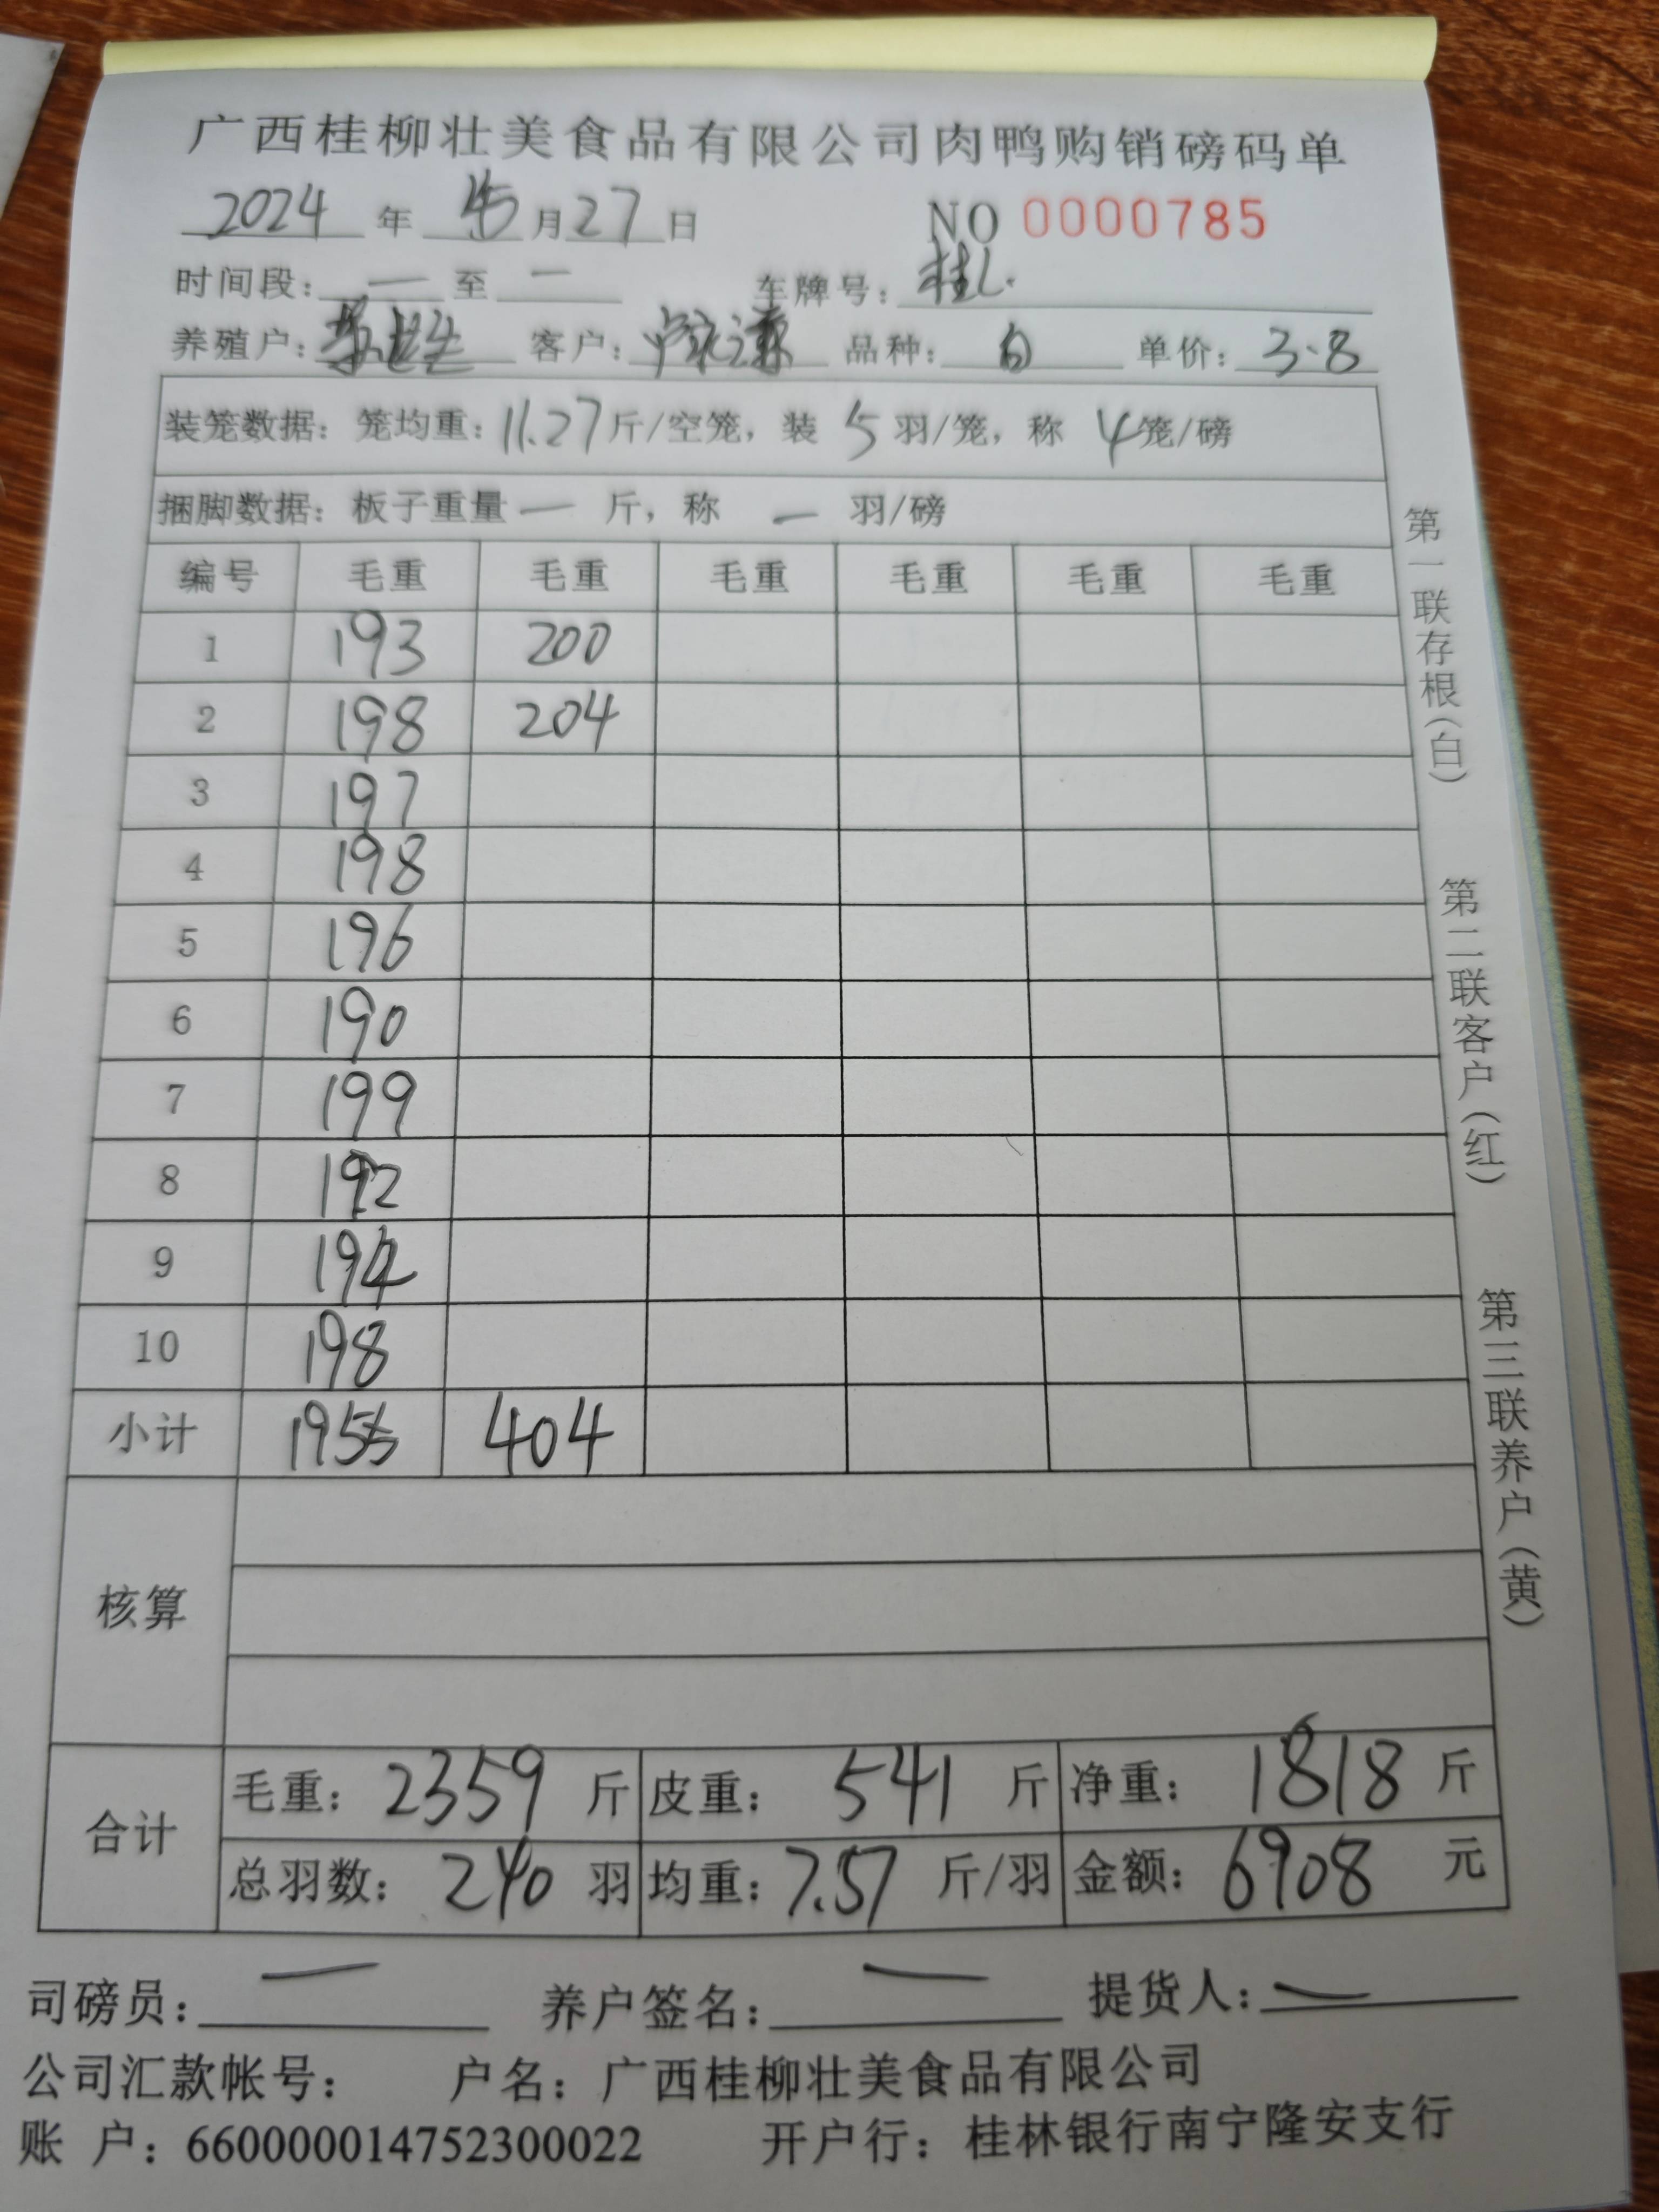 广西桂柳壮美食品有限公司肉鸭购销磅码单
2024 年 月 27 日 NO 0000785
时间段: 一 至 一 车牌号: 桂
养殖户: 客户: 品种: 白 单价: 3.8
装笼数据: 笼均重: 11.27 斤/空笼, 装 5 羽/笼, 称 4 笼/磅
捆脚数据: 板子重量 一 斤, 称 一 羽/磅
编号 毛重 毛重 毛重 毛重 毛重 毛重
1 193 200
2 198 204
3 197
4 198
5 196
6 190
7 199
8 192
9 194
10 198
小计 1955 404
核算
合计 毛重: 2359 斤 皮重: 541 斤 净重: 1818 斤
总羽数: 240 羽 均重: 7.57 斤/羽 金额: 6908 元
司磅员: 一 养户签名: 一 提货人: 一
公司汇款帐号: 户名: 广西桂柳壮美食品有限公司
账 户: 660000014752300022 开户行: 桂林银行南宁隆安支行
第一联存根(白)
第二联客户(红)
第三联养户(黄)